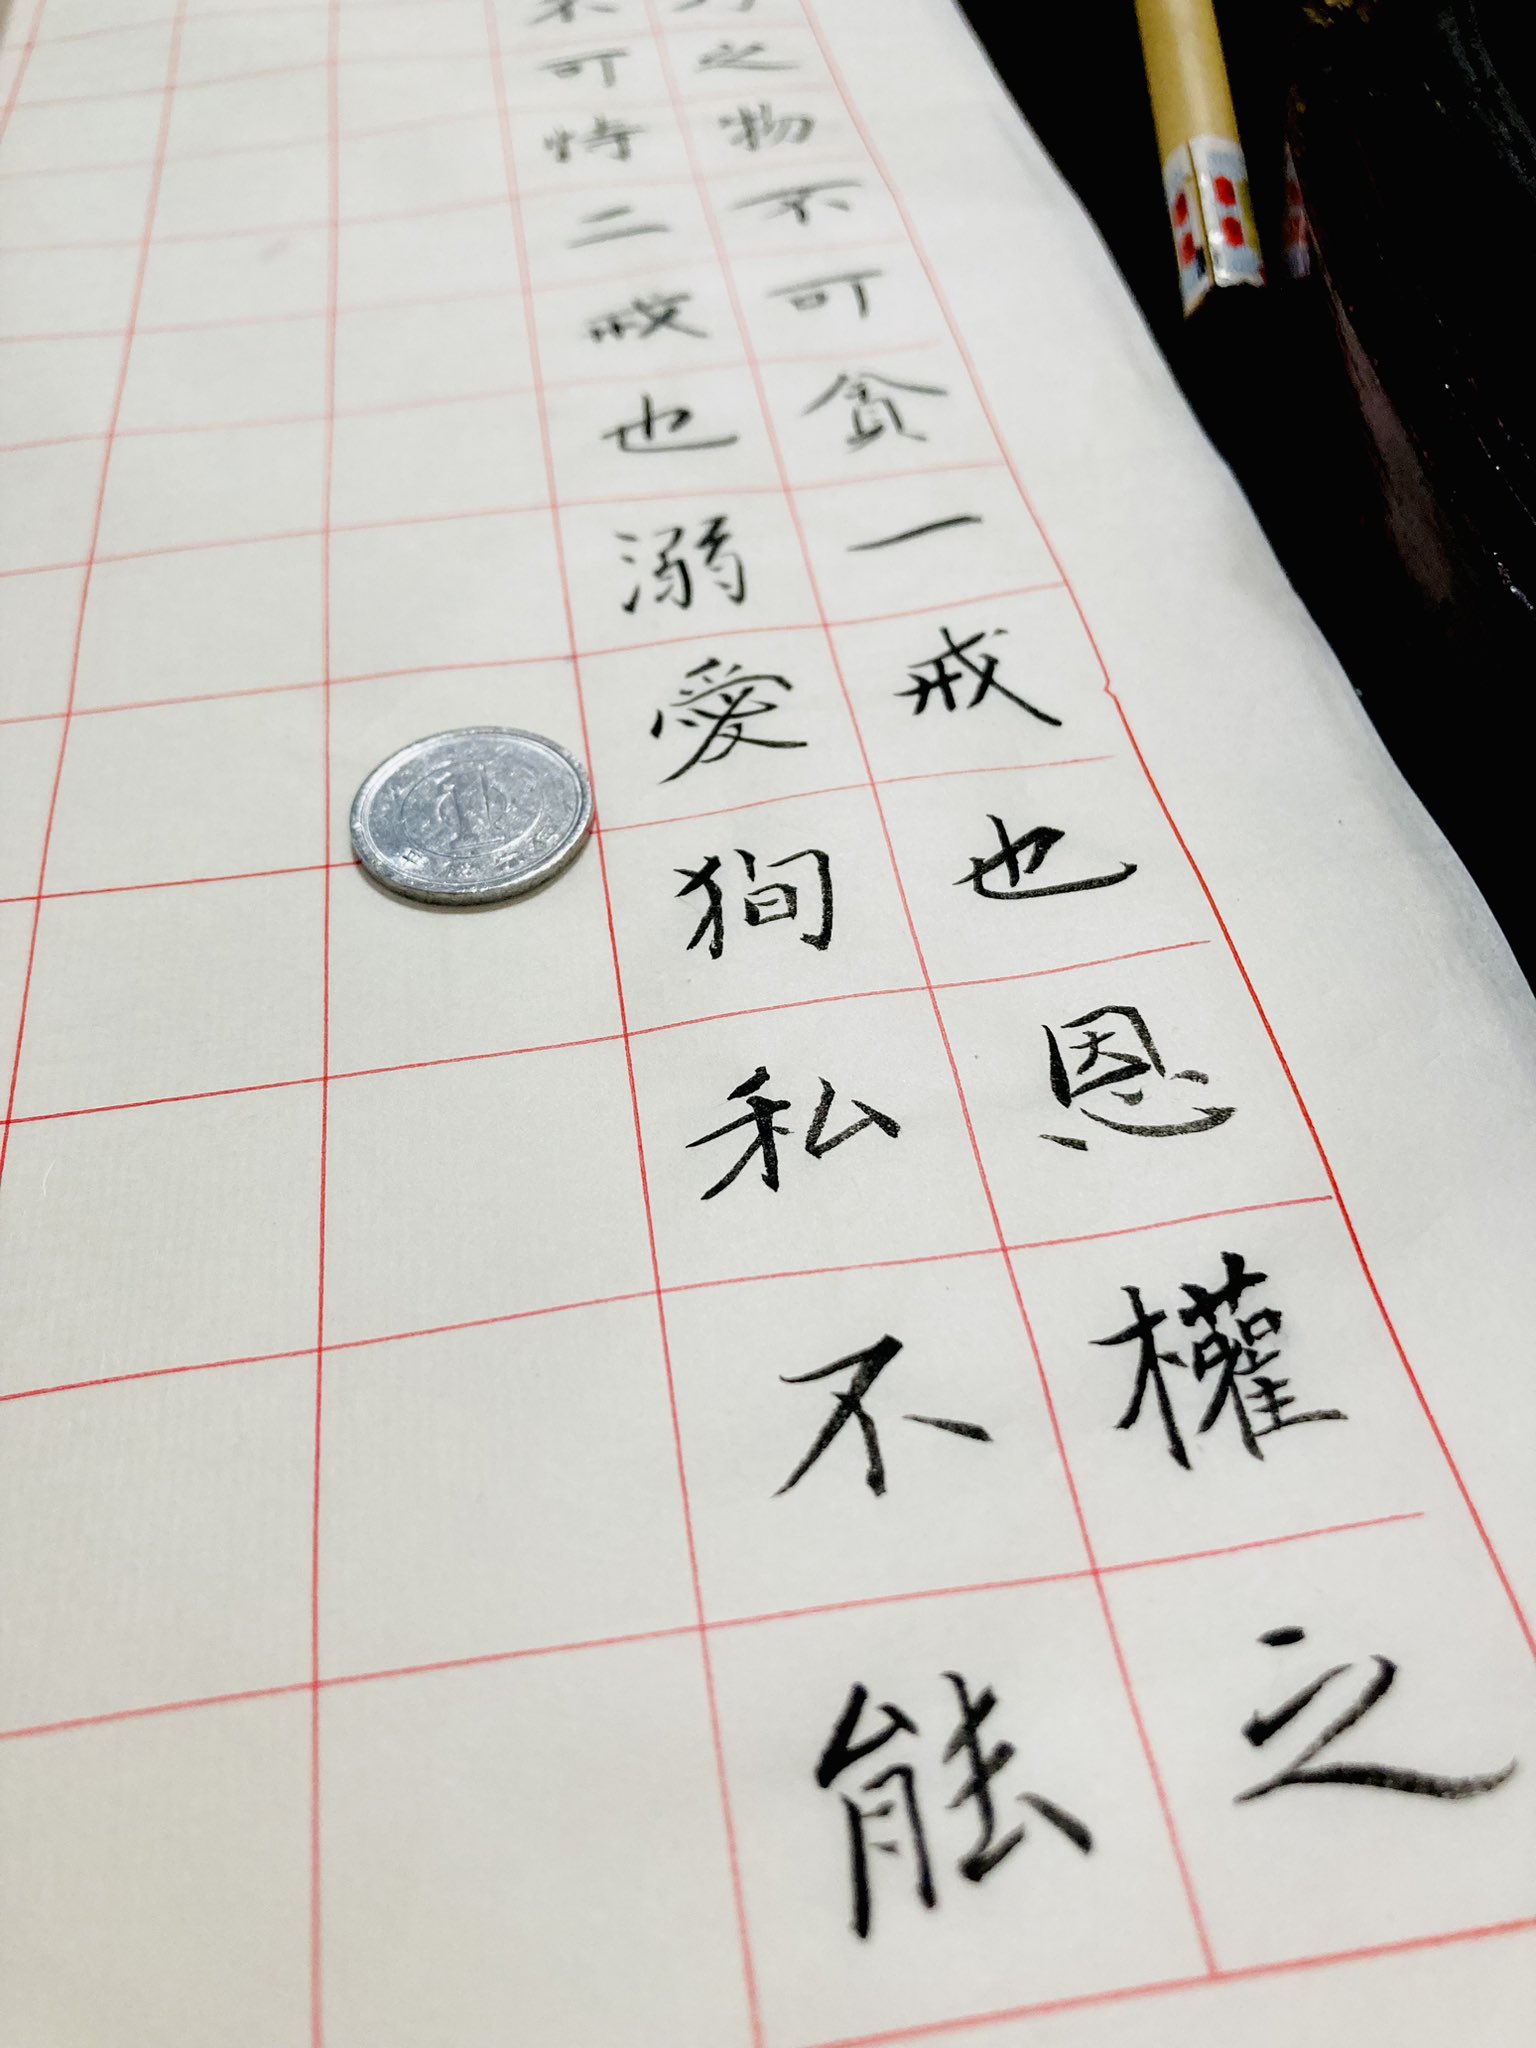 之物不可貪一戒也恩權之
可恃二戒也溺愛狥私不能